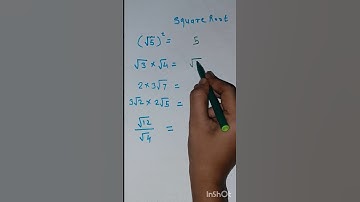 Square Root
(√5)² = 5
√3 × √4 = √
2 × 3√7 =
3√2 × 2√5 =
√12 / √4 =
InShOt